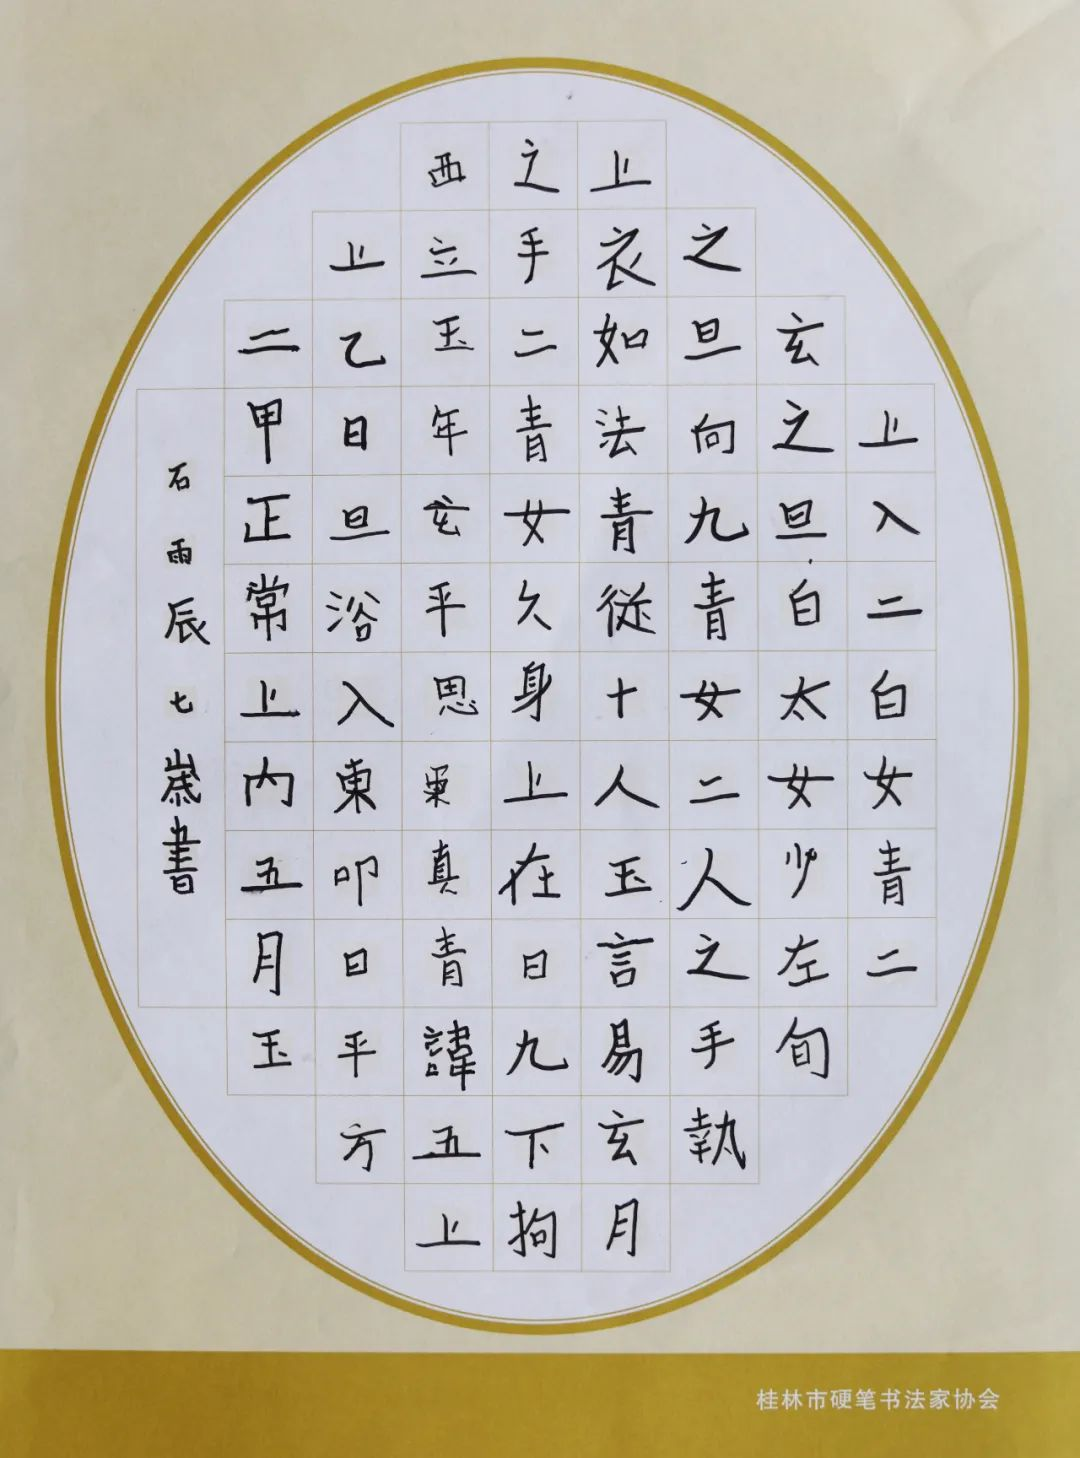 上入二白女青二
玄之旦白太女少左旬
之旦向九青女二人之手執
上衣如法青從十人玉言易玄月
之手二青女久身上在日九下拘
西立玉年玄平思東真青諱五上
上乙日旦浴入東叩日平方
二甲正常上内五月玉
石雨辰七歲書
桂林市硬笔书法家协会